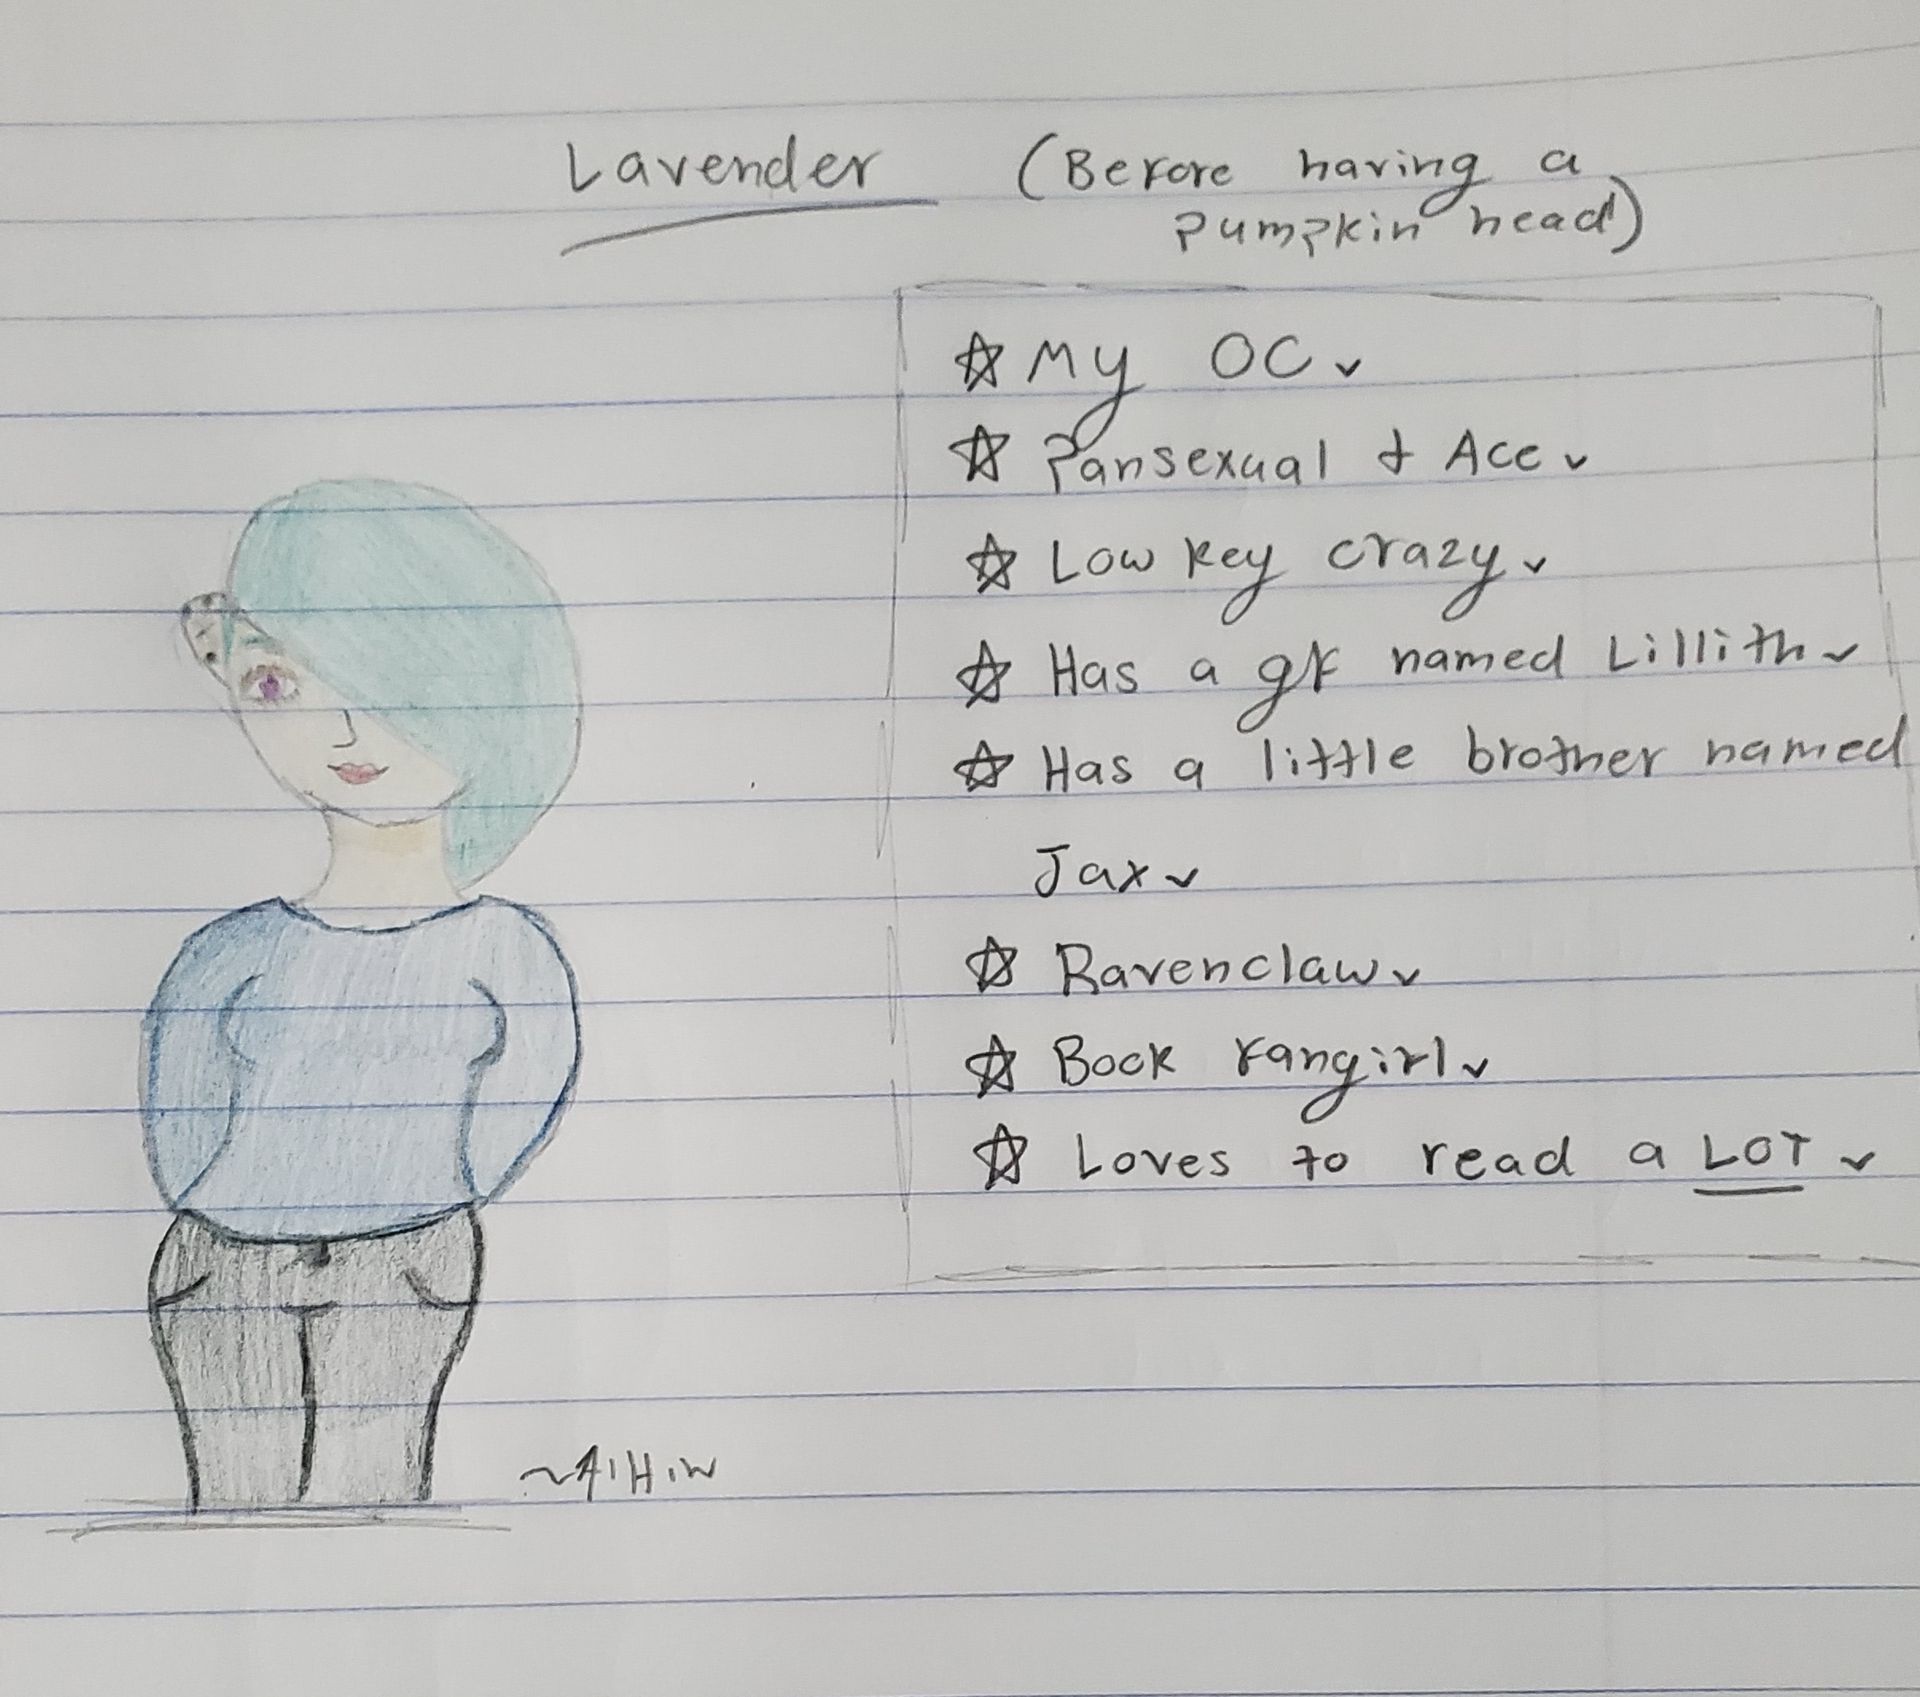 Lavender (Before having a
pumpkin head)
☆ My OC✓
☆ Pansexual & Ace✓
☆ Low key crazy✓
☆ Has a gf named Lillith✓
☆ Has a little brother named
Jax✓
☆ Ravenclaw✓
☆ Book fangirl✓
☆ Loves to read a LOT✓